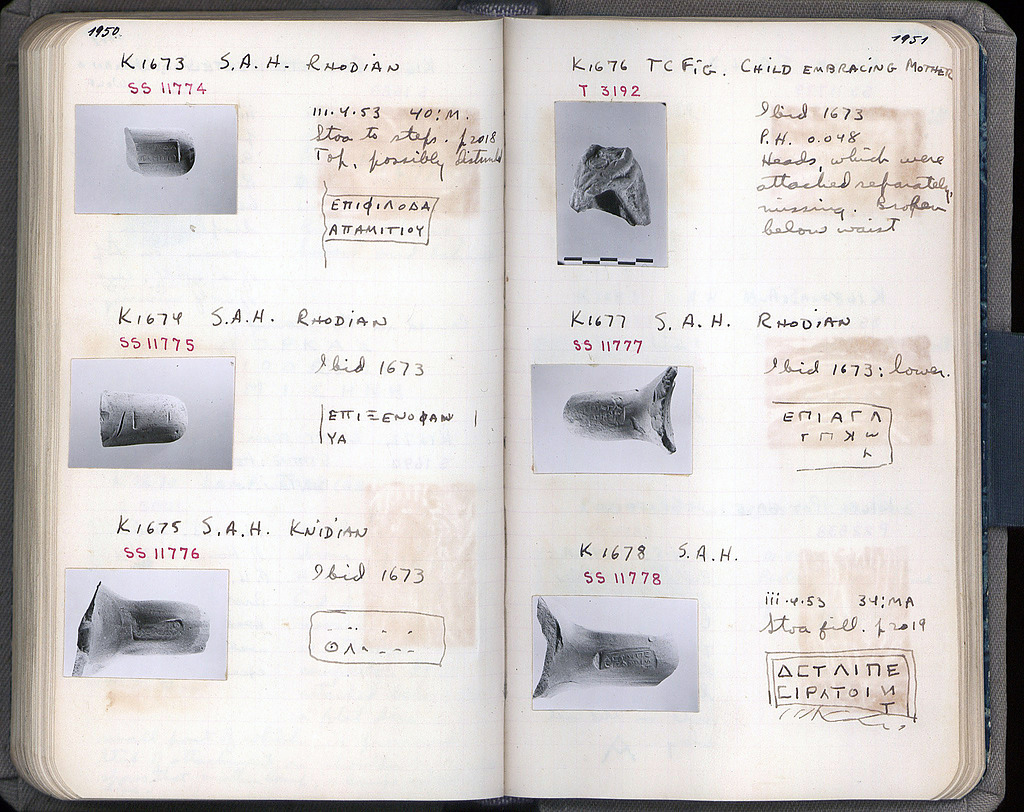 1950
K1673 S.A.H. RHODIAN
SS 11774
iii.4.53 40:M.
Stoa to steps. p2018
Top, possibly disturbed
ΕΠΙΦΙΛΟΔΑ
ΑΠΑΜΙΤΙΟΥ
K1674 S.A.H. RHODIAN
SS 11775
Ibid 1673
ΕΠΙΞΕΝΟΦΑΝ
ΥΑ
K1675 S.A.H. KNIDIAN
SS 11776
Ibid 1673
ΘΛ
1951
K1676 TC FIG. CHILD EMBRACING MOTHER
T 3192
Ibid 1673
P.H. 0.048
Heads, which were
attached separately,
missing. Broken
below waist
K1677 S.A.H. RHODIAN
SS 11777
Ibid 1673: lower.
ΕΠΙΑΓΛ
K1678 S.A.H.
SS 11778
iii.4.53 34:MA
Stoa fill. p2019